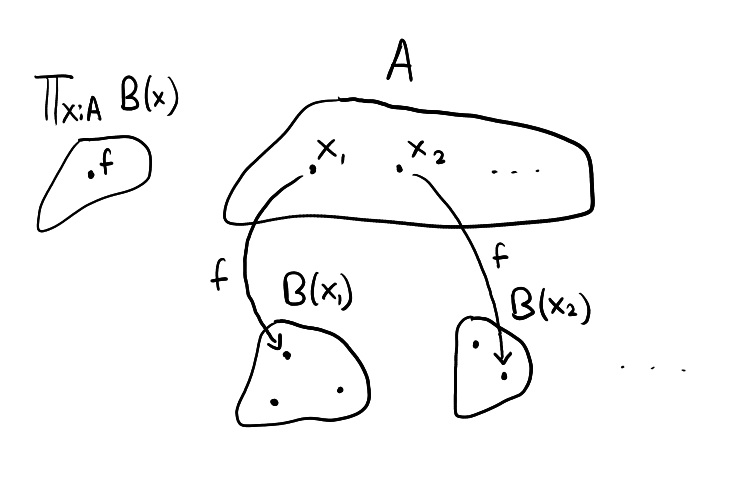 A
∏x:A B(x)
f
x₁ x₂ ....
f
f
B(x₁)
B(x₂)
....